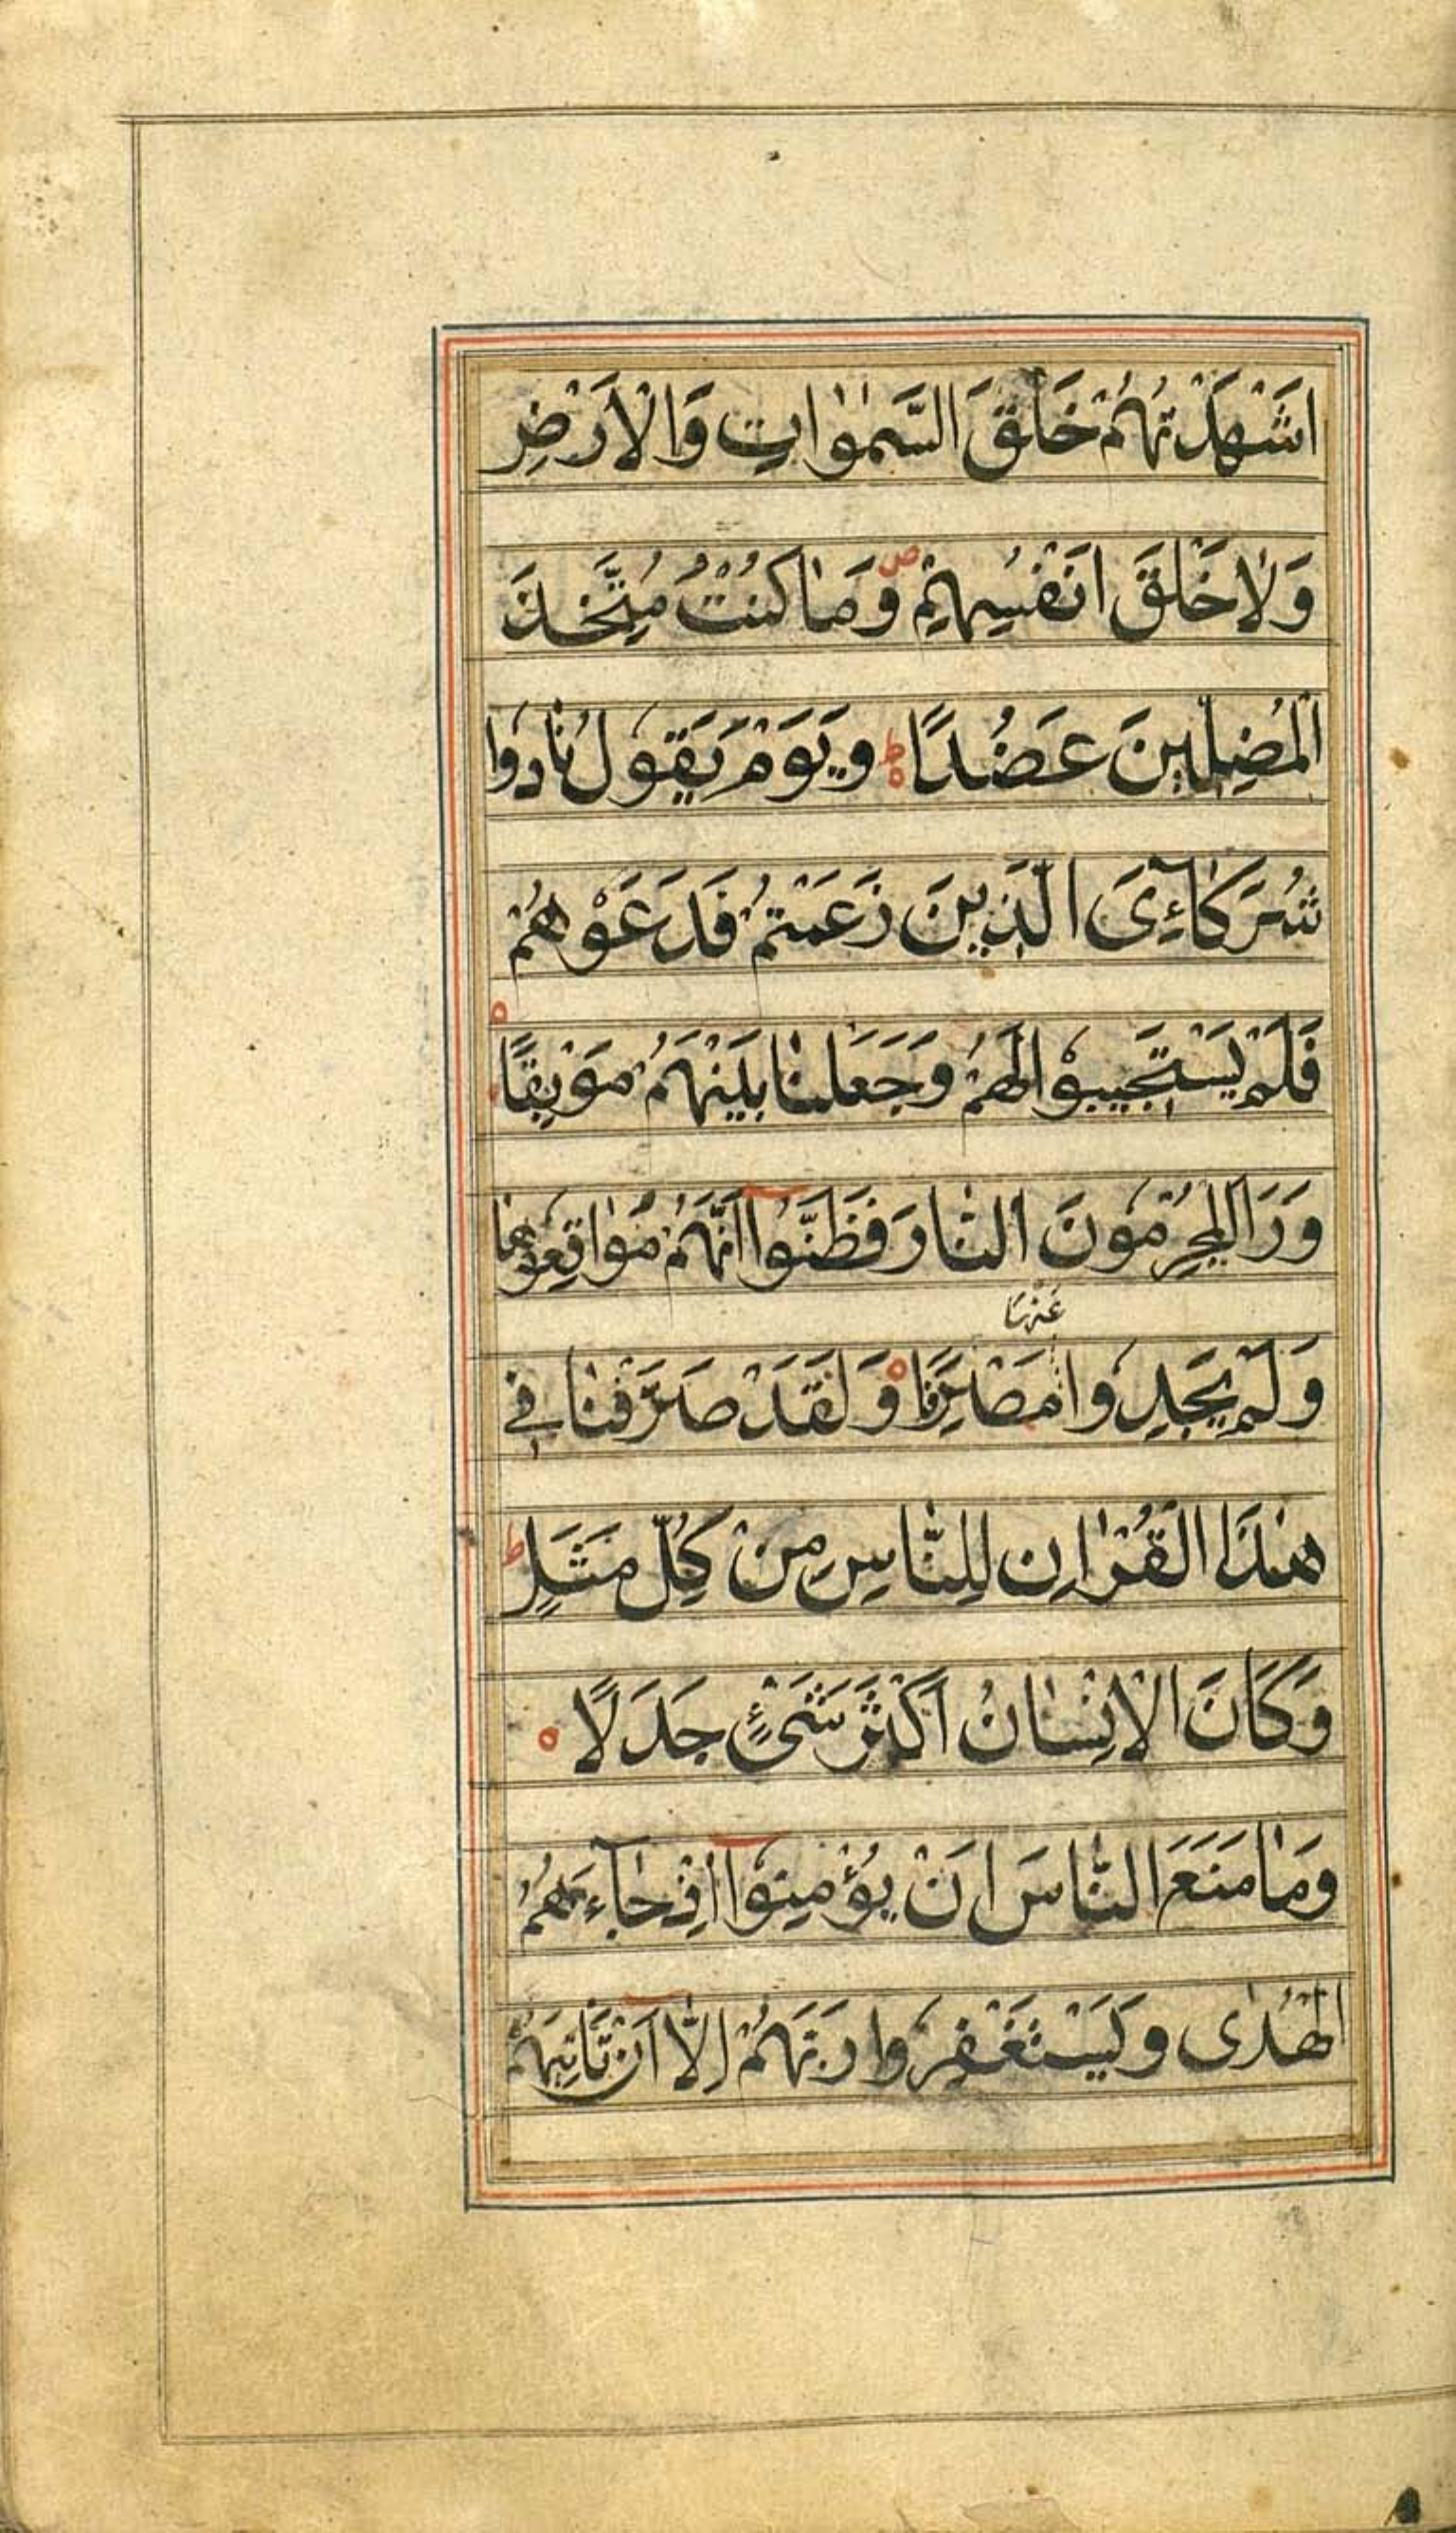 اَشْهَدْتُهُمْ خَلْقَ السَّمٰوَاتِ وَالْاَرْضِ
وَلَا خَلْقَ اَنْفُسِهِمْ ص وَمَا كُنْتُ مُتَّخِذَ
الْمُضِلّينَ عَضُدًا ط ه وَيَوْمَ يَقُولُ نَادُوا
شُرَكَآئِىَ الَّذِينَ زَعَمْتُمْ فَدَعَوْهُمْ
فَلَمْ يَسْتَجِيبُوا لَهُمْ وَجَعَلْنَا بَيْنَهُمْ مَوْبِقًا ه
وَرَاَ الْمُجْرِمُونَ النَّارَ فَظَنُّوٓا اَنَّهُمْ مُوَاقِعُوهَا
عَنْهَا
وَلَمْ يَجِدُوا مَصْرِفًا ه وَلَقَدْ صَرَّفْنَا فِي
هٰذَا الْقُرْاٰنِ لِلنَّاسِ مِنْ كُلِّ مَثَلٍ ط
وَكَانَ الْاِنْسَانُ اَكْثَرَ شَىْءٍ جَدَلًا ه
وَمَا مَنَعَ النَّاسَ اَنْ يُؤْمِنُوٓا اِذْ جَآءَهُمُ
الْهُدٰى وَيَسْتَغْفِرُوا رَبَّهُمْ اِلَّآ اَنْ تَاْتِيَهُمْ